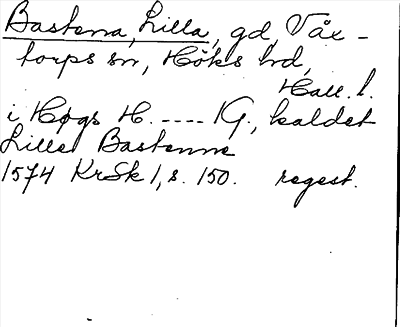 Bastena, Lilla, gd, Våx-
torps sn, Höks hd,
Hall. l.
i Høgs H. ---- 1 G., kaldet
Lille Bastenne
1574 KrSk 1, s. 150. regest.